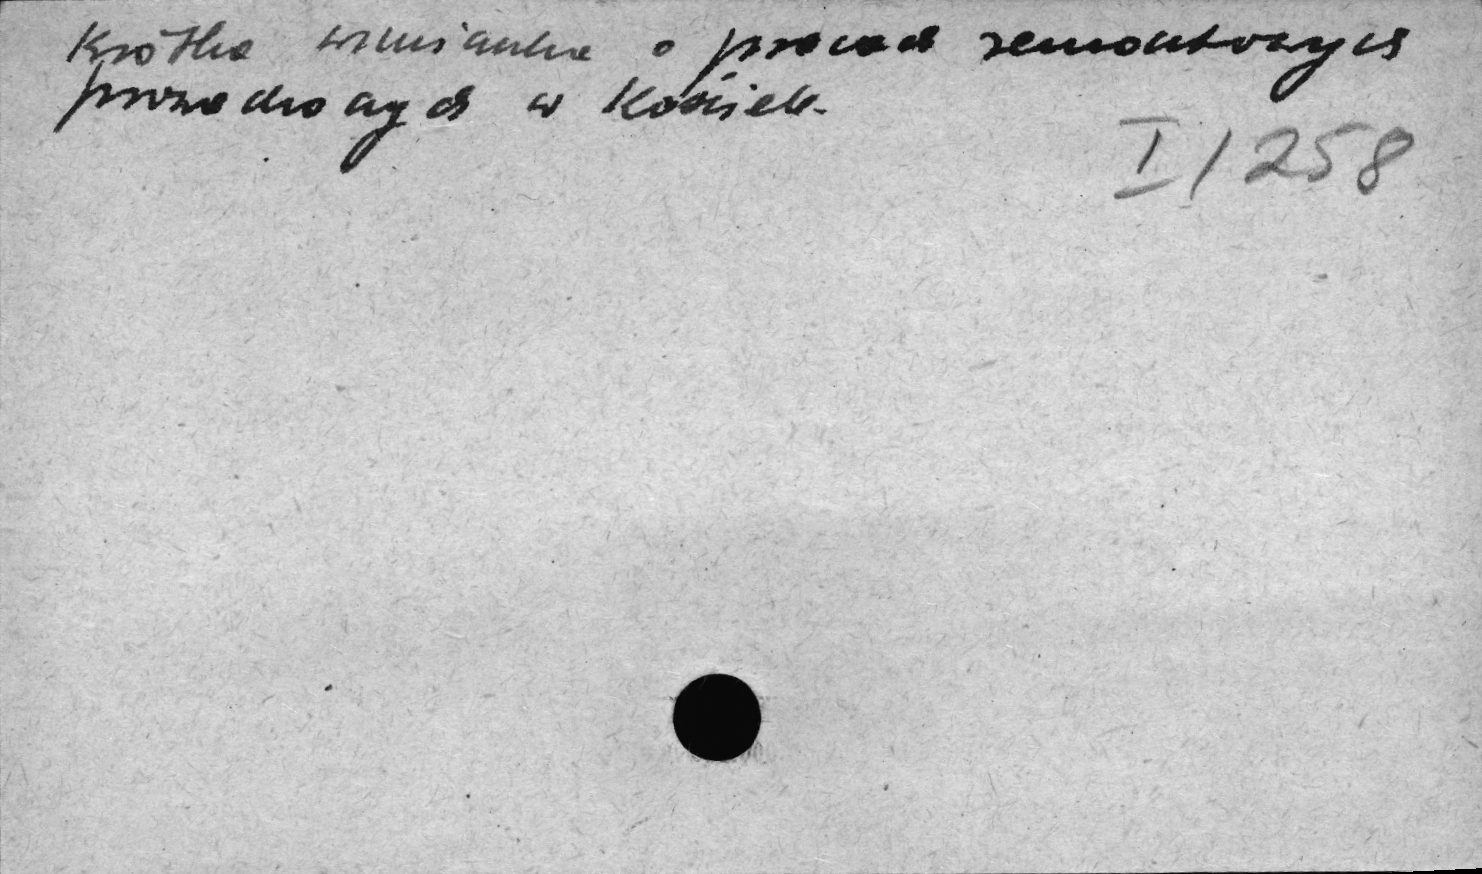 Krótka wzmianka o pracach remontowych
prowadzonych w Kościele.
I/258